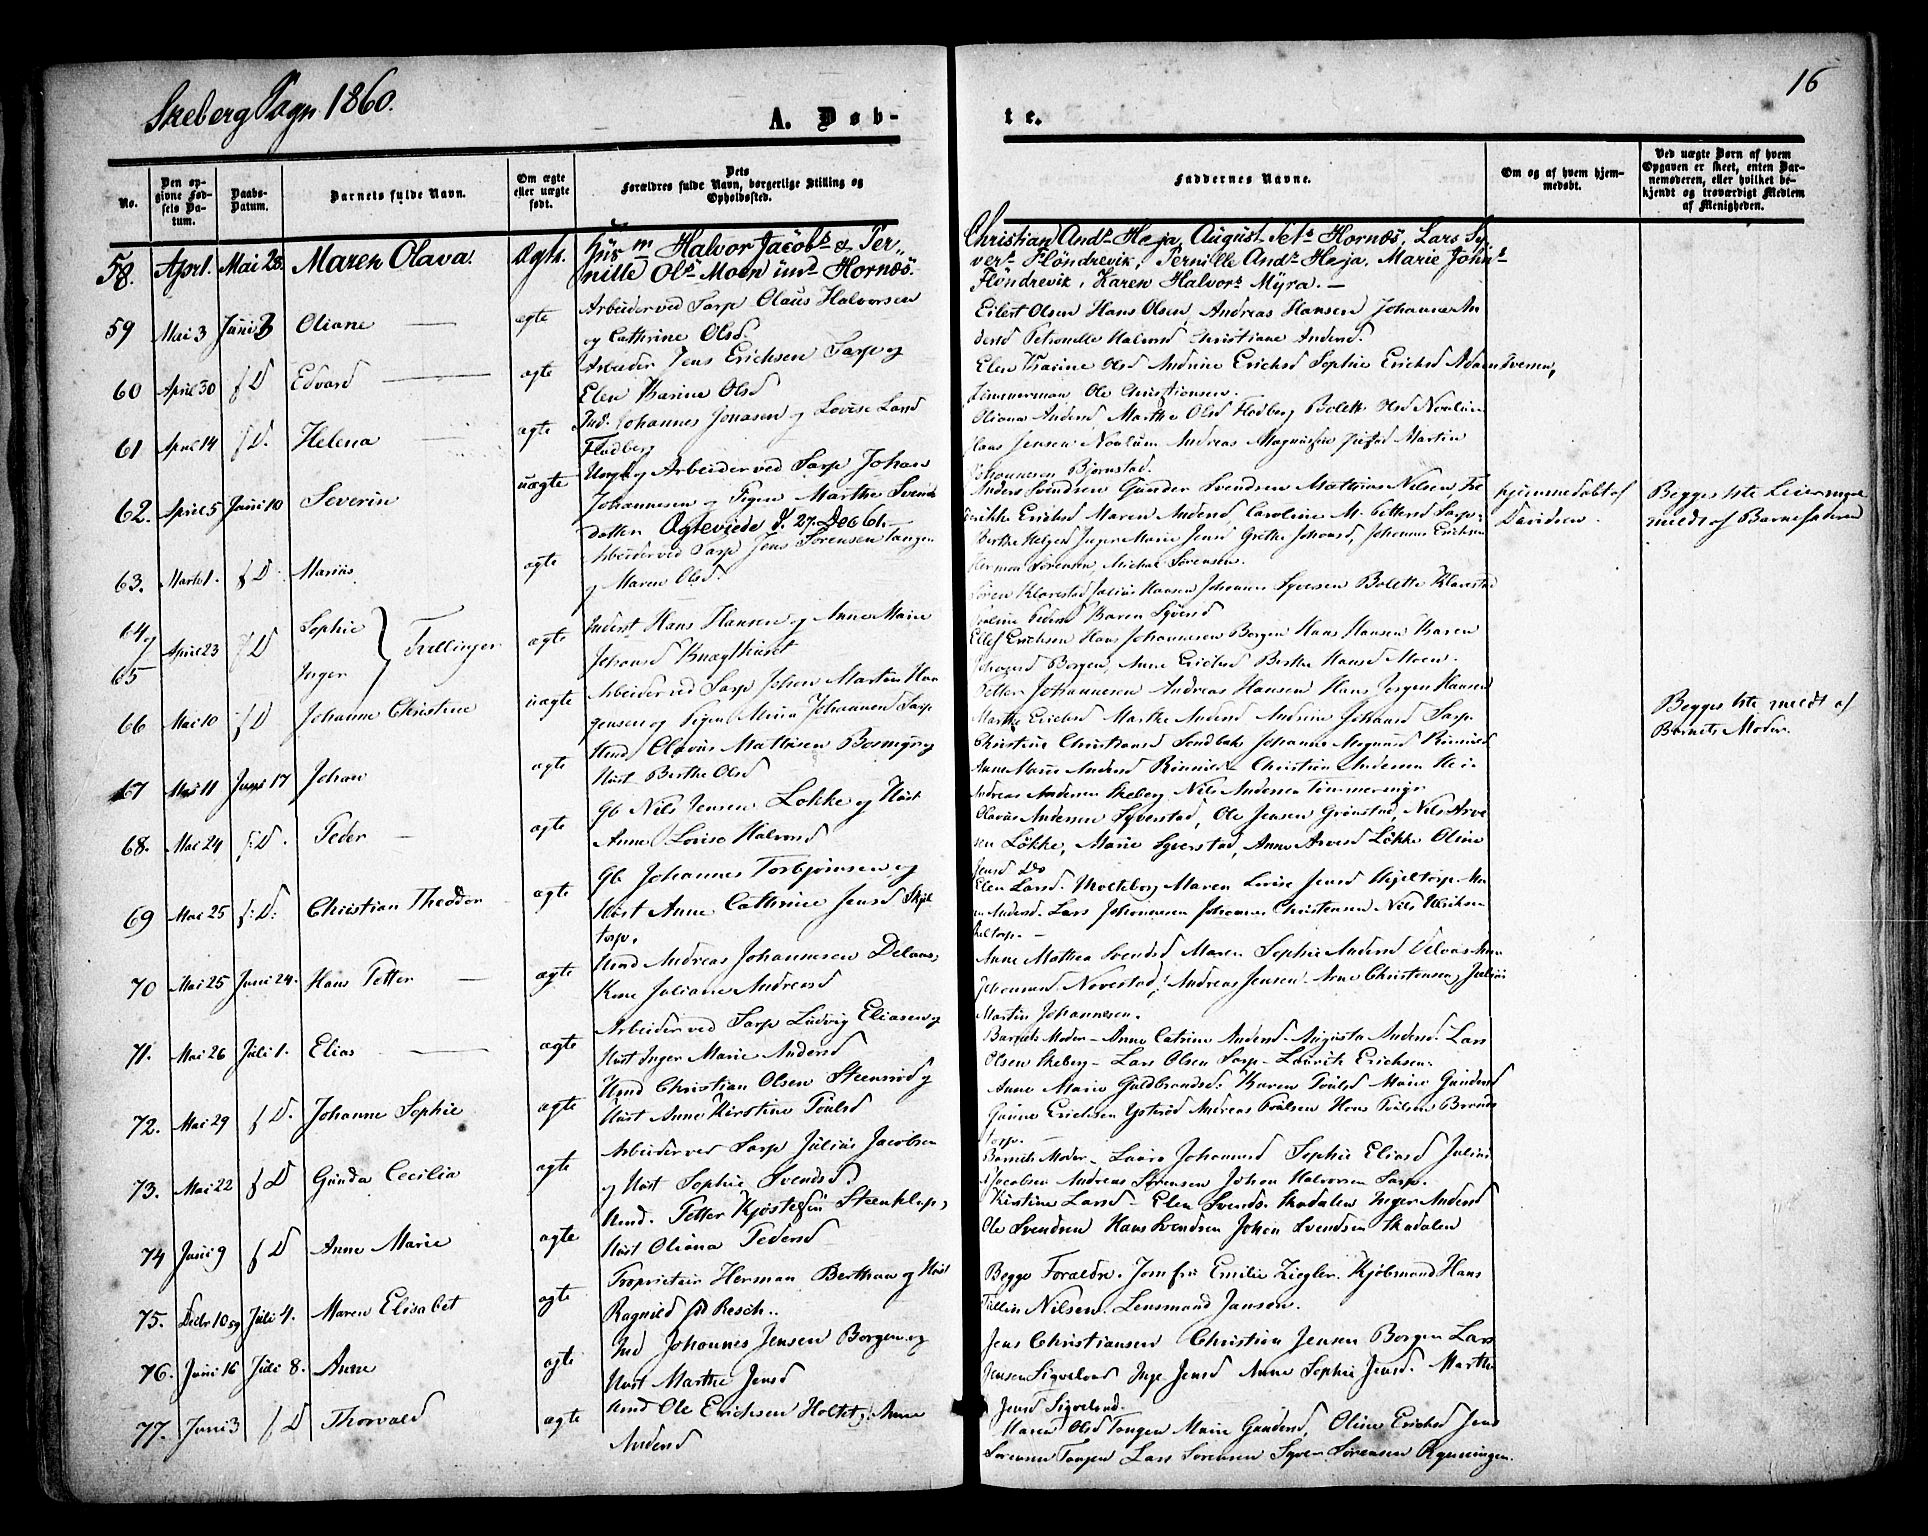 Skeberg Sogn 1860.
16
A. Døb-
te.
No.
Den opgivne Fødsels Datum.
Daabs-Datum.
Barnets fulde Navn.
Om ægte eller uægte født.
Dets Forældres fulde Navn, borgerlige Stilling og Opholdssted.
Faddernes Navne.
Om og af hvem hjemmedøbt.
Ved uægte Børn af hvem Opgaven er skeet, enten Barnemoderen, eller hvilket bekjendt og troværdigt Medlem af Menigheden.
58. April. Mai 28. Maren Olava. Ægte.
Halvor Jacobs & Per-
nille Ols Moen und Hornös.
Christian Ands Heja, August Pets Hornös, Lars Sy-
vers Flöndrevik, Pernille Ands Heja, Marie Johns
Flöndrevik, Karen Halvors Myra. —
59 Mai 3 Juni 3 Oliane — ægte
Arbeider ved Sarp Olaus Halvorsen
og Cathrine Olsd.
Eilert Olsen Hans Olsen, Andreas Hansen Johanne An
dersd Petronelle Halvorsd Christiane Andersd.
60 April 30 f D Edvard — ægte
Arbeider Jens Erichsen Sarp og
Elen Karine Olsd
Elen Karine Olsd Andrine Erichsd Sophie Erichsd
Zimmerman, Ole Christiansen.
61 April 14 f D. Helena — ægte
Ind. Johannes Jonasen og Lovise Land
Flodberg
Oliana Andersd, Marthe Olsd Flodberg Bolette Olsd
Jensen Andreas Magnussen Martin
Johannesen Bjørnstad.
62. April 5 Juni 10 Severin uægte
Ungk og Arbeider ved Sarp Johan
Johannesen og Pigen Marthe Svends
datter Ægteviede d. 27. Dec 61.
Anders Svendsen Gunder Svendsen Mathias Nilsen, Fre
drikke Erichsd Maren Andersd, Caroline M. Pettersd Sarp.
hjemmedøbt af
Davidsen.
Begges 1ste Leiermaal
meldt af Barnefaderen
63. Marts 1. f D. Marius ægte
Arbeider ved Sarp Jens Sørensen Tangen
og Maren Olsd.
Berthe Helgesd Inger Marie Jensd Grethe Johansd, Johannes Erichsen
Herman Sørensen, Michal Sørensen.
64 og
65
April 23 f D
Sophie
Inger
Tvillinger
ægte
Inderst Hans Hansen og Anne Marie
Johansd Knagthuset
Søren Klavestad Julius Hansen Johannes Syversen Bolette Klavestad
Pedersd Karen Syversd
Ellef Erichsen Hans Johannesen Borgen Hans Hansen Karen
Johansd Borgen, Anne Erichsd Berthe Hansd Moen.
66 Mai 10 f D Johanne Christine uægte
Arbeider ved Sarp Johan Martin Han
og Pigen Mina Johannesd Sarp
Petter Johannesen Andreas Hansen Hans Jørgen Hansen
Marthe Erichsd Marthe Andersd Andrine Johansd Sarp.
Begges 1ste meldt af
Barnets Moder.
67 Mai 11 Juni 17 Johan ægte
Hmd Olavus Mathisen og
Hust Berthe Olsd
Christine Christiansd Sandbak Johanne Magnusd
Anne Marie Andersd Christian Andersen
Andreas Andersen Skeberg Nils Andersen
68. Mai 24 f. D. Peder — ægte
Gb Nils Jensen Løkke og Hust
Anne Lovise Halvorsd
Olavus Andersen Syverstad, Ole Jensen Grønstad, Nils Arve
sen Løkke, Marie Syverstad, Anne Arvesd Løkke Oline
Jensd Do
69 Mai 25 f: D: Christian Theodor ægte
Gb Johannes Torbjørnsen og
Hust Anne Cathrine Jensd Skjel
torp.
Elen Larsd. Maren Lovise Jensd Skjeltorp.
Andersd. Lars Johannesen Johannes Christensen Nils Ulriksen
70 Mai 25 Juni 24. Hans Petter — ægte
Hmd Andreas Johannesen
Kone Juliane Andreasd
Anne Mathea Svendsd, Maren Sophie Andersd
Andreas Jensen Arne Christensen, Julius
Martin Johannesen.
71. Mai 26 Juli 1. Elias — ægte
Arbeider ved Sarp Ludvig Eliasen og
Hust Inger Marie Andersd
Barnets Moder — Anne Catrine Andersd. Augusta Andersd. Lars
Olsen Skeberg — Lars Olsen Sarp — Lauritz Erichsen.
72. Mai 29 f D. Johanne Sophie ægte
Hmd Christian Olsen Steensrød og
Hust Anne Kirstine Poulsd
Anne Marie Guldbrandsd. Karen Poulsd Marie Gundersd
Erichsen Andreas Poulsen Hans Poulsen
73. Mai 22 f D Gunda Cecilia ægte
Arbeider ved Sarp Julius Jacobsen
og Hust Sophie Svendsd.
Barnets Moder — Laura Johannesd Sophie Eliasd Julius
Jacobsen Andreas Sørensen Johan Halvorsen Sarp.
74 Juni 9 f D Anne Marie ægte
Hmd. Petter Kjøstelsen
Hust Oliana Pedersd
Kirstine Larsd — Elen Svends. Skadalen Inger Andersd
Ole Svendsen Hans Svendsen Johan Svendsen Skadalen
75. Decbr 10 59 Juli 4. Maren Elisabet ægte
Proprietair Herman Berthau og Hust
Ragnild fød Resch.
Begge Forældre. Jomfru Emilie Ziegler. Kjøbmand Hans
Nilsen. Lensmand Jansen.
76. Juni 16 Juli 8. Anne ægte
Ind Johannes Jensen Borgen og
Hust Marthe Jensd
Jens Christiansen Christian Jensen Borgen Lars
Jensen Sigvelsd Inge Jensd Anne Sophie Jensd. Marthe
Jensd
77. Juni 3 f D Thorvald ægte
Hmd Ole Erichsen Holtet og Anne
Andersd
Maren Olsd Tangen Marie Gundersd, Oline Erichsd Jens
Sørensen Tangen Lars Sørensen Syver Sørensen Rynningen.